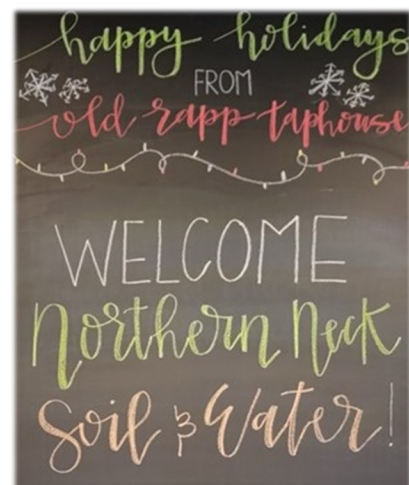 happy holidays
FROM
old rapp taphouse
WELCOME
Northern Neck
Soil & Water!